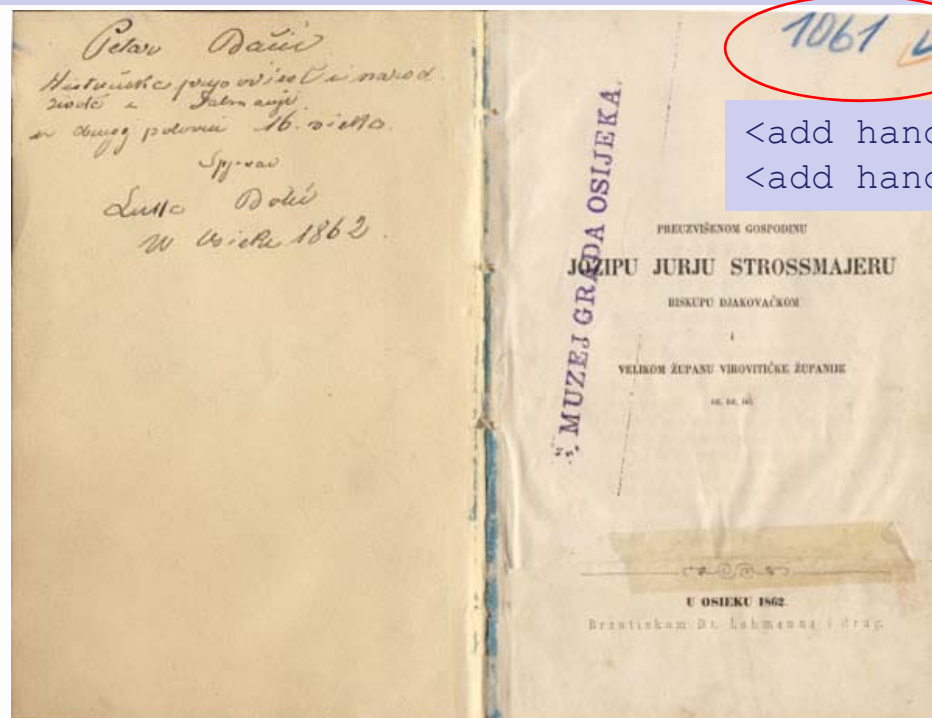 Petar Bačić
Historička pripoviest iz narod.
života u Dalmaciji
u drugoj polovici 16. vieka.
Spjevao
Luka Botić
U Osieku 1862.
1061
<add hand
<add hand
MUZEJ GRADA OSIJEKA
PREUZVIŠENOM GOSPODINU
JOZIPU JURJU STROSSMAJERU
BISKUPU DJAKOVAČKOM
I
VELIKOM ŽUPANU VIROVITIČKE ŽUPANIJE
U OSIEKU 1862.
Brzotiskom Dr. Lehmanna i drug.